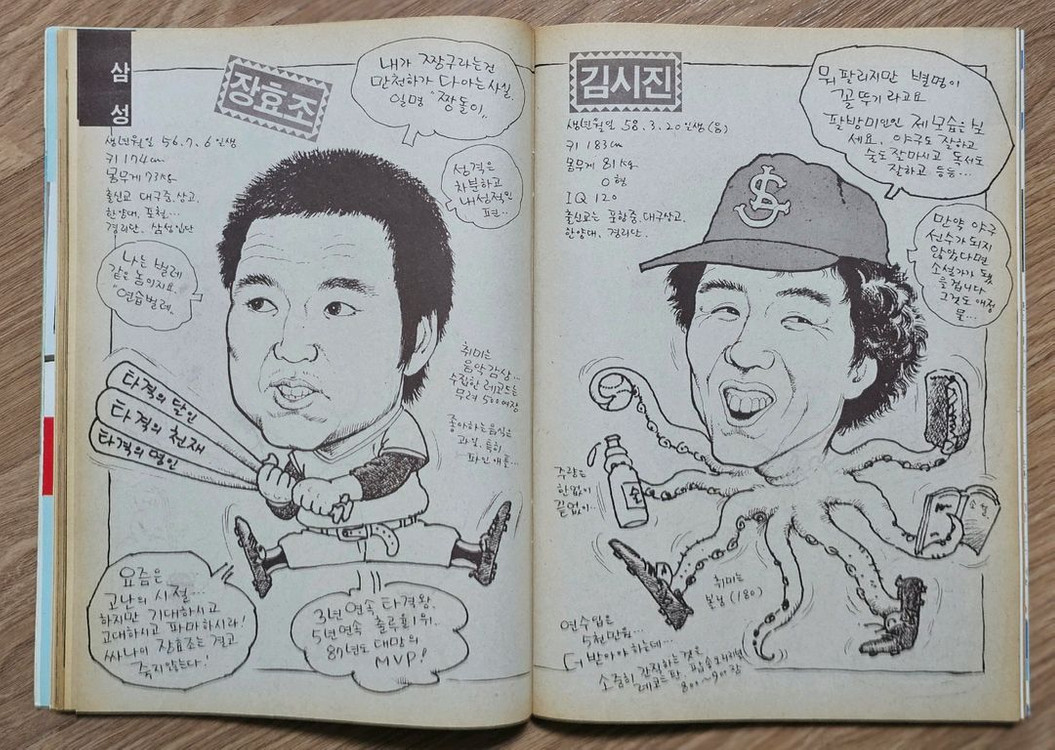 삼
성
장효조
내가 짱구라는건
만천하가 다 아는 사실.
일명 "짱돌이"..
생년월일 56.7.6일생
키 174cm
몸무게 73kg
출신교 대구중.상고.
한양대. 포철...
경리단. 삼성입단
성격은
차분하고
내성적인
편...
나는 벌레
같은 놈이지요.
"연습벌레"
타격의 달인
타격의 천재
타격의 명인
취미는
음악감상...
수집한 레코드는
무려 500여장
좋아하는 음식은
과일. 특히
파인애플...
요즘은
고난의 시절...
하지만 기대하시고
고대하시고 파마하시라!
싸나이 장효조는 결코
죽지않는다!
3년 연속 타격왕.
5년연속 출루률1위.
87년도 대망의
MVP!
김시진
생년월일 58.3.20일생(음)
키 183cm
몸무게 81kg
O형
IQ 120
출신교는 포항중.대구상고.
한양대. 경리단.
뭐 팔리지만 별명이
꼴뚜기라고요
팔방미인인 제모습을 보
세요. 야구도 잘하고
술도 잘마시고 독서도
잘하고 등등...
만약 야구
선수가 되지
않았다면
소설가가 됐
을겁니다
그것도 애정
물...
SL
주량은
한없이
끝없이...
술
소설
취미는
볼링 (180)
연수입은
5천만원...
더 받아야 하는데...
소중히 간직하는것은
레코드판. 팝송노래책
800~900장